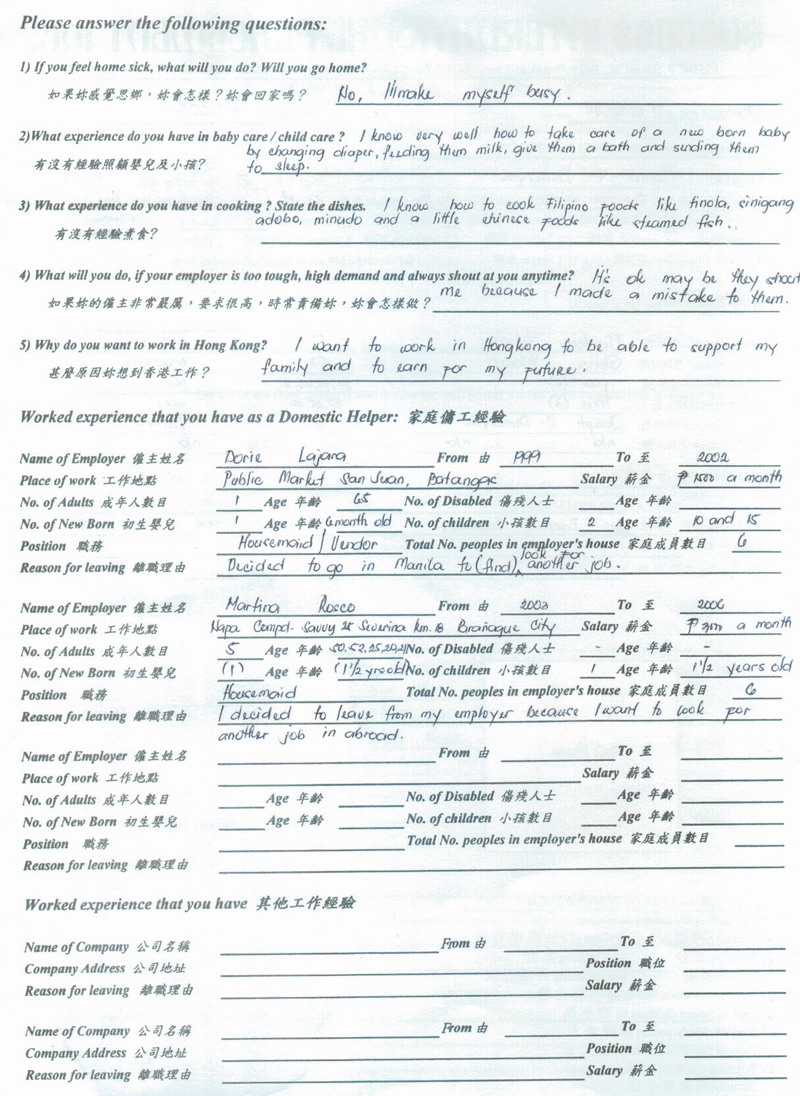 Please answer the following questions:
1) If you feel home sick, what will you do? Will you go home?
如果妳感覺思鄉，妳會怎樣？妳會回家嗎？ No, I'll make myself busy.
2)What experience do you have in baby care / child care ? I know very well how to take care of a new born baby
by changing diaper, feeding them milk, give them a bath and sending them
有沒有經驗照顧嬰兒及小孩? to sleep.
3) What experience do you have in cooking ? State the dishes. I know how to cook Filipino foods like tinola, sinigang
adobo, minudo and a little chinese foods like steamed fish..
有沒有經驗煮食?
4) What will you do, if your employer is too tough, high demand and always shout at you anytime? It's ok may be they shout
如果妳的僱主非常嚴厲，要求很高，時常責備妳，妳會怎樣做？ me because I made a mistake to them.
5) Why do you want to work in Hong Kong? I want to work in Hongkong to be able to support my
甚麼原因妳想到香港工作？ family and to earn for my future.
Worked experience that you have as a Domestic Helper: 家庭傭工經驗
Name of Employer 僱主姓名 Dorie Lajara From 由 1999 To 至 2002
Place of work 工作地點 Public Market San Juan, Batangas Salary 薪金 ₱ 1500 a month
No. of Adults 成年人數目 1 Age 年齡 65 No. of Disabled 傷殘人士 Age 年齡
No. of New Born 初生嬰兒 1 Age 年齡 6 month old No. of children 小孩數目 2 Age 年齡 10 and 15
Position 職務 Housemaid / Vendor Total No. peoples in employer's house 家庭成員數目 6
Reason for leaving 離職理由 Decided to go in Manila to (find) look for another job.
Name of Employer 僱主姓名 Martina Rosco From 由 2003 To 至 2006
Place of work 工作地點 Napa Compd. Severina Km. 18 City Salary 薪金 ₱ a month
No. of Adults 成年人數目 5 Age 年齡 50, 52, 25, 29, 21 No. of Disabled 傷殘人士 - Age 年齡 -
No. of New Born 初生嬰兒 (1) Age 年齡 (1 1/2 yrs old) No. of children 小孩數目 1 Age 年齡 1 1/2 years old
Position 職務 Housemaid Total No. peoples in employer's house 家庭成員數目 6
Reason for leaving 離職理由 I decided to leave from my employer because I want to look for
another job in abroad.
Name of Employer 僱主姓名 From 由 To 至
Place of work 工作地點 Salary 薪金
No. of Adults 成年人數目 Age 年齡 No. of Disabled 傷殘人士 Age 年齡
No. of New Born 初生嬰兒 Age 年齡 No. of children 小孩數目 Age 年齡
Position 職務 Total No. peoples in employer's house 家庭成員數目
Reason for leaving 離職理由
Worked experience that you have 其他工作經驗
Name of Company 公司名稱 From 由 To 至
Company Address 公司地址 Position 職位
Reason for leaving 離職理由 Salary 薪金
Name of Company 公司名稱 From 由 To 至
Company Address 公司地址 Position 職位
Reason for leaving 離職理由 Salary 薪金